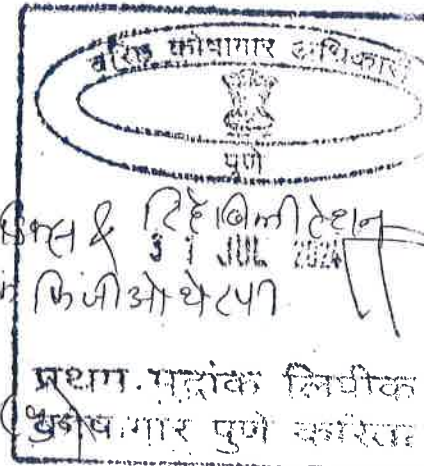 वरिष्ठ कोषागार अधिकारी
पुणे
& रिहॅबिलीटेशन
31 JUL 2024
फिजीओथेरपी
प्रथम मुद्रांक लिपीक
कोषागार पुणे करिता